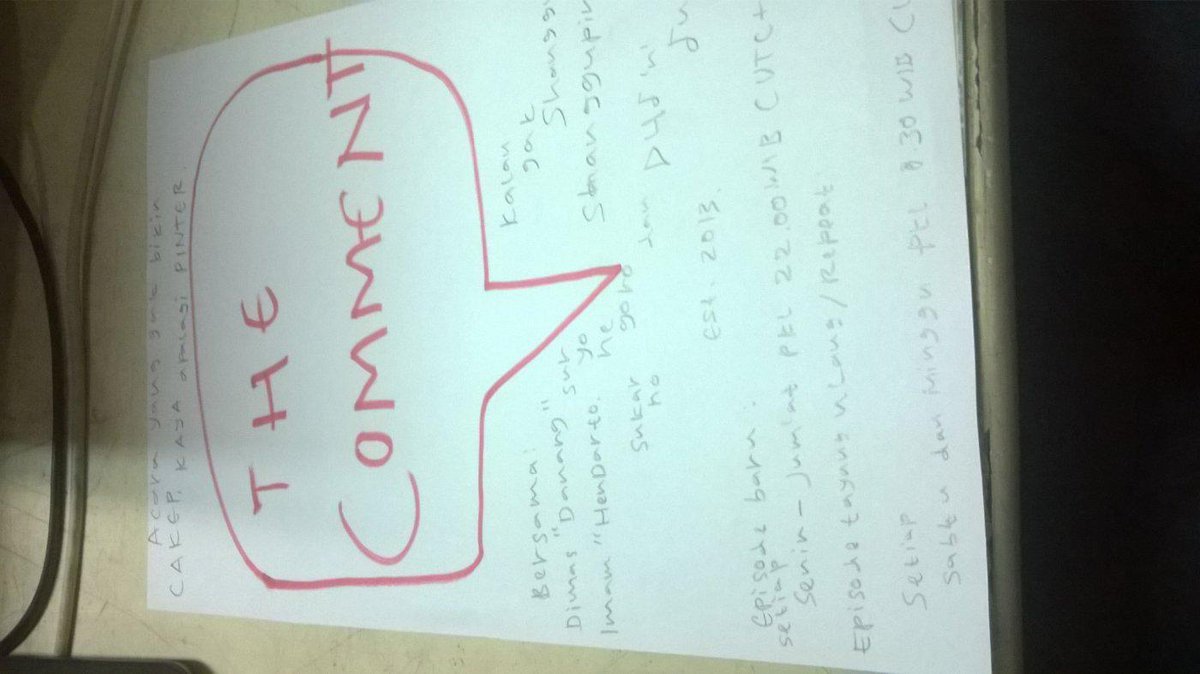 Acara yang gak bikin
CAKEP, KAYA apalagi PINTER.
THE
COMMENT
Bersama:
Dimas "Danang" sur yo
Imam "HenDarto. he
sukar goro
no dan
kalau
gak
Shangg
Sthanggupin
Est. 2013.
Episode baru:
setiap
Senin - Jum'at PKL 22.00 WIB (UTC+
Episode tayang ulang/Repeat:
Setiap
Sabtu dan Minggu PKL 8 30 WIB (U